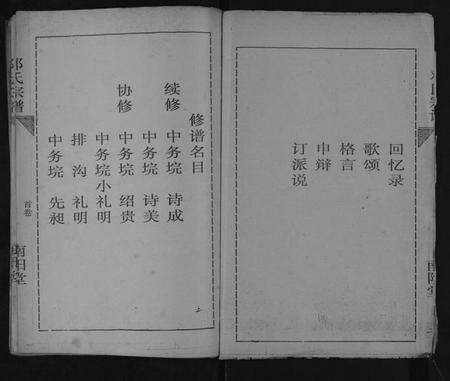 回忆录
歌颂
格言
申辩
订派说
修谱名目
续修 中务垸 诗成
中务垸 诗美
协修 中务垸 绍贵
中务垸小礼明
排沟 礼明
中务垸 先昶
邓氏宗谱
首卷
南阳堂